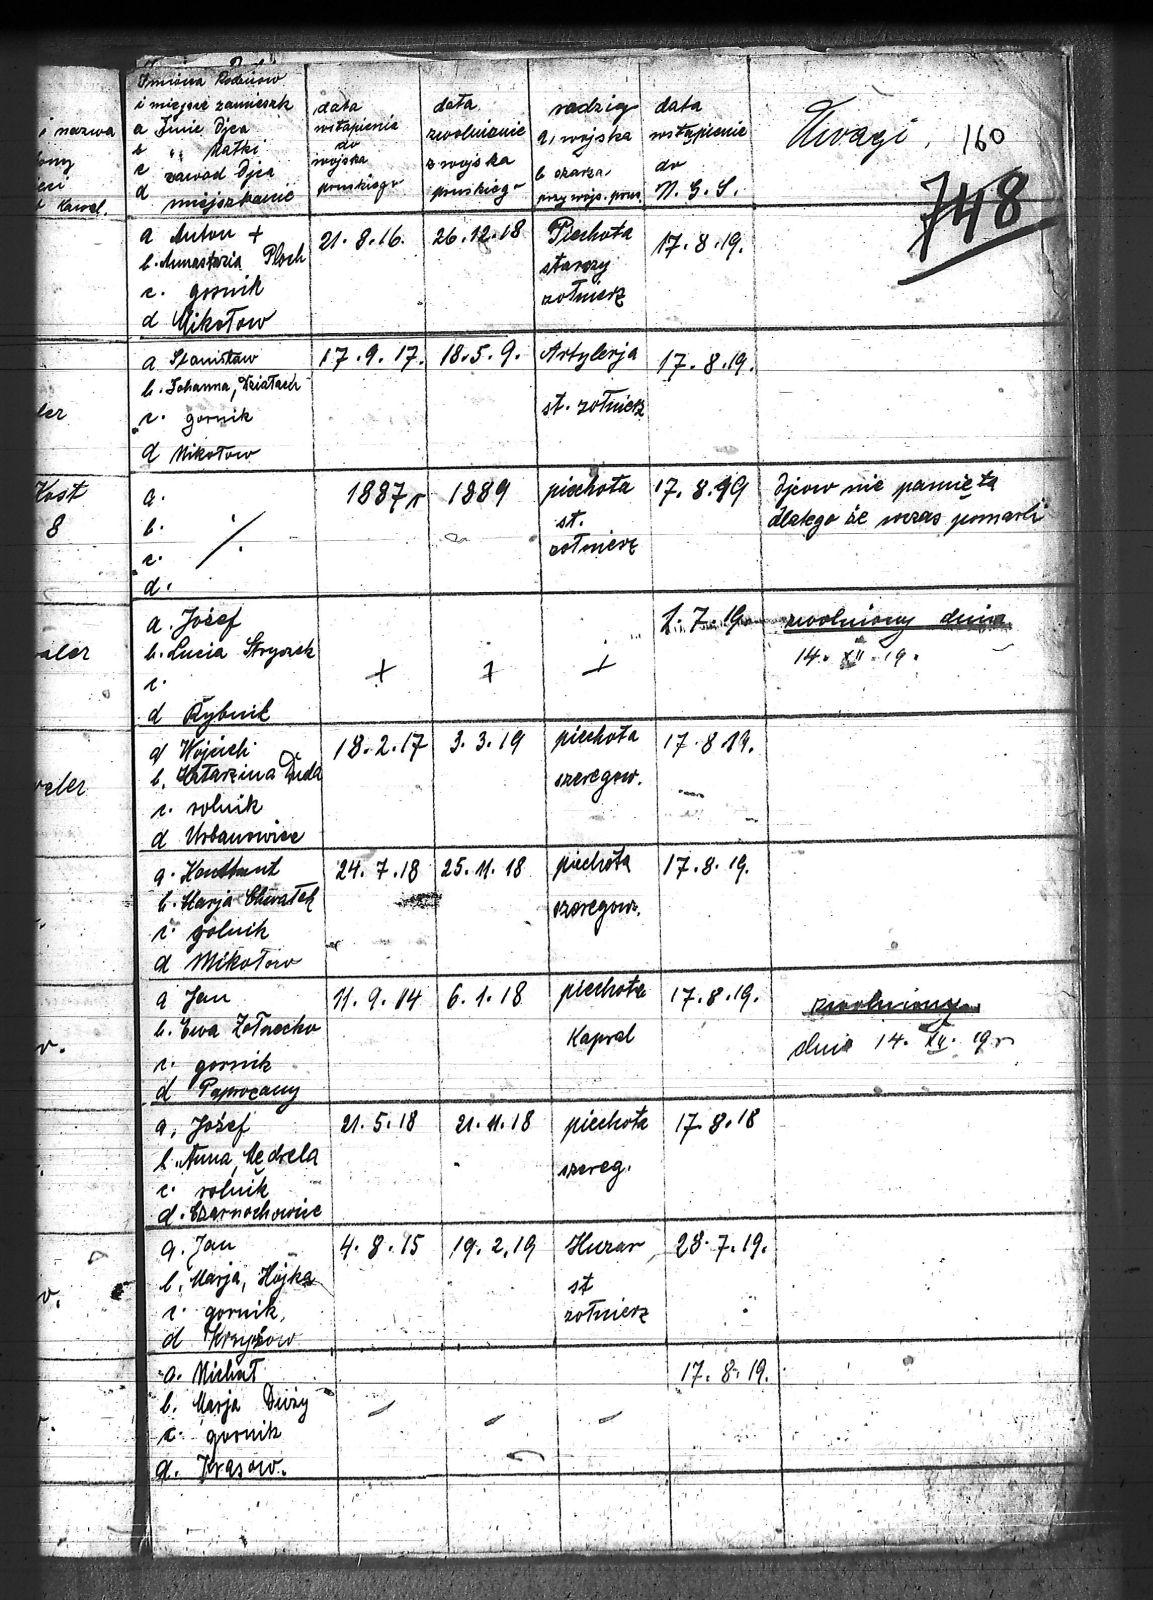 Imiona Rodziców
i miejsce zamieszk
a Imie Ojca
b " Matki
c zawód Ojca
d miejszkanie
data
wstąpienia
do
wojska
pruskiego
data
zwolnienie
z wojska
pruskiego
rodzaj
a, wojska
b szarza
przy wojs. prus.
data
wstąpienie
do
N. G. S.
Uwagi. 160
748
i nazwa
Kawal.
a Anton +
b. Anastazia Ploch
c. gornik
d Mikołow
21. 8. 16.
26. 12. 18
Piechota
starszy
zołnierz
17. 8. 19.
ler
a Stanisław
b. Johanna,
c. gornik
d Mikołow
17. 9. 17.
18. 5. 9.
Artylerja
st. zołnierz
17. 8. 19.
8
a.
b.
c.
d.
1887 r
1889
piechota
st.
zołnierz
17. 8. 19
Ojcow nie pamięta
dlatego że wczas pomarli
a. Józef
b. Lucia Stryczek
c.
d Rybnik
+ + +
1. 7. 19
zwolniony dnia
14. XII. 19.
a Wojciech
b. Katarzina Duda
c. rolnik
d Urbanowice
18. 2. 17
3. 3. 19
piechota
szeregow.
17. 8 19.
a.
b. Marja Chwałek
c. golnik
d Mikołow
24. 7. 18
25. 11. 18
piechota
szeregow.
17. 8. 19.
a Jan
b. Ewa
c. gornik
d Paprocany
11. 9. 14
6. 1. 18
piechota
Kapral
17. 8. 19.
zwolniony
dnia 14. XII. 19 r
a, Józef
b. Anna, Medrela
c. rolnik
d. Czarnochowice
21. 5. 18
21. 11. 18
piechota
szereg.
17. 8. 18
a. Jan
b, Marja, Hojka
c. gornik,
d Krzyżow
4. 8. 15
19. 2. 19
Huzar
st
zołnierz
28. 7. 19.
a. Michał
b. Marja Duży
c. gornik
d. Krasow.
17. 8. 19.